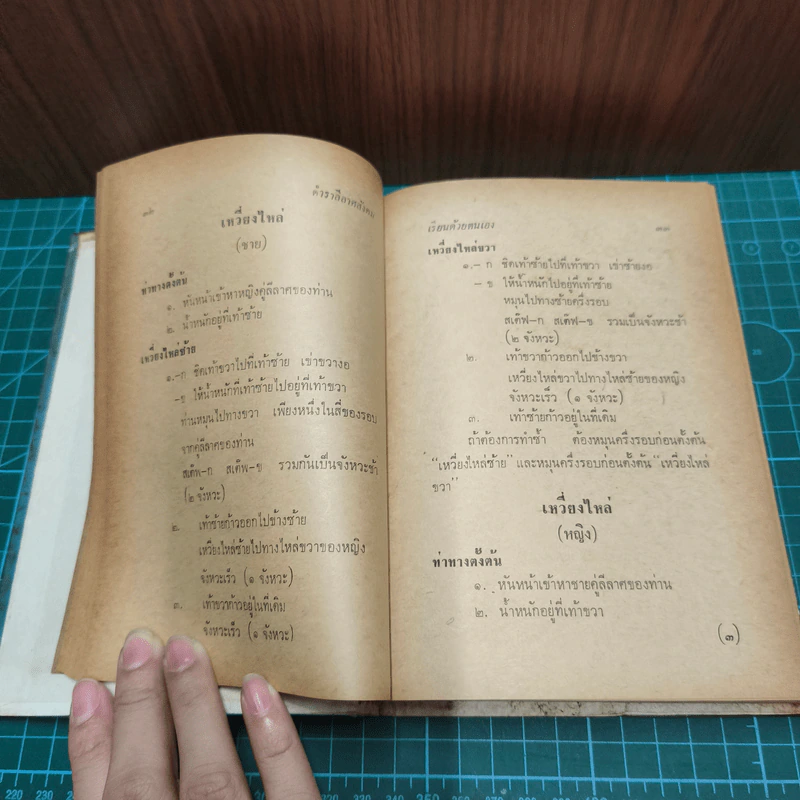 ๓๒ ตำราลีลาศสังคม
เหวี่ยงไหล่
(ชาย)
ท่าทางตั้งต้น
๑. หันหน้าเข้าหาหญิงคู่ลีลาศของท่าน
๒. น้ำหนักอยู่ที่เท้าซ้าย
เหวี่ยงไหล่ซ้าย
๑.-ก ชิดเท้าขวาไปที่เท้าซ้าย เข่าขวางอ
-ข ให้น้ำหนักที่เท้าซ้ายไปอยู่ที่เท้าขวา
ท่านหมุนไปทางขวา เพียงหนึ่งในสี่ของรอบ
จากคู่ลีลาศของท่าน
สเต็พ-ก สเต็พ-ข รวมกันเป็นจังหวะช้า
(๒ จังหวะ)
๒. เท้าซ้ายก้าวออกไปข้างซ้าย
เหวี่ยงไหล่ซ้ายไปทางไหล่ขวาของหญิง
จังหวะเร็ว (๑ จังหวะ)
๓. เท้าขวาก้าวอยู่ในที่เดิม
จังหวะเร็ว (๑ จังหวะ)
เรียนด้วยตนเอง ๓๓
เหวี่ยงไหล่ขวา
๑.- ก ชิดเท้าซ้ายไปที่เท้าขวา เข่าซ้ายงอ
- ข ให้น้ำหนักไปอยู่ที่เท้าซ้าย
หมุนไปทางซ้ายครึ่งรอบ
สเต็พ-ก สเต็พ-ข รวมเป็นจังหวะช้า
(๒ จังหวะ)
๒. เท้าขวาก้าวออกไปข้างขวา
เหวี่ยงไหล่ขวาไปทางไหล่ซ้ายของหญิง
จังหวะเร็ว (๑ จังหวะ)
๓. เท้าซ้ายก้าวอยู่ในที่เดิม
ถ้าต้องการทำซ้ำ ต้องหมุนครึ่งรอบก่อนตั้งต้น
"เหวี่ยงไหล่ซ้าย" และหมุนครึ่งรอบก่อนตั้งต้น "เหวี่ยงไหล่
ขวา"
เหวี่ยงไหล่
(หญิง)
ท่าทางตั้งต้น
๑. หันหน้าเข้าหาชายคู่ลีลาศของท่าน
๒. น้ำหนักอยู่ที่เท้าขวา
(๓)